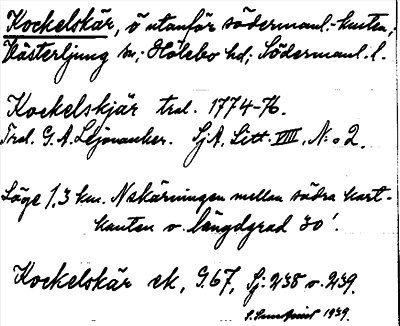 Kockelskär, ö utanför södermanl. kusten;
Västerljung sn; Hölebo hd; Södermanl. l.
Kockelskjär tral. 1774-76.
Tral. G. A. Lejonanker. SjA, Litt. VIII, No 2.
Läge 1,3 km. N skärningen mellan södra kart-
kanten o. längdgrad 30'.
Kockelskär ek, G. 67, Sj: 238 o. 239.
1939.